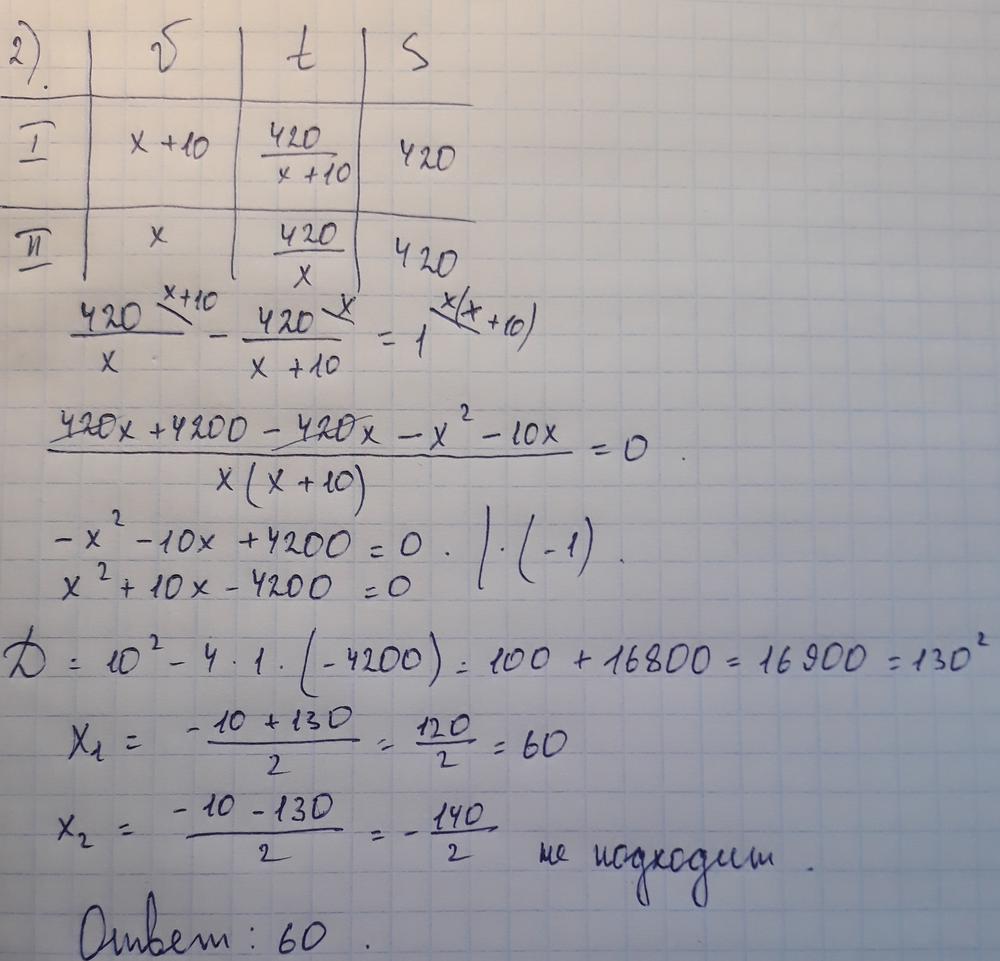 2). v t S
I x+10 420/(x+10) 420
II x 420/x 420
420/x ^(x+10) - 420/(x+10) ^x = 1 ^(x(x+10))
(420x+4200-420x-x²-10x)/(x(x+10)) = 0.
-x²-10x+4200=0. |·(-1).
x²+10x-4200=0
D = 10²-4·1·(-4200) = 100+16800 = 16900 = 130²
x₁ = (-10+130)/2 = 120/2 = 60
x₂ = (-10-130)/2 = -140/2 не подходит.
Ответ: 60.